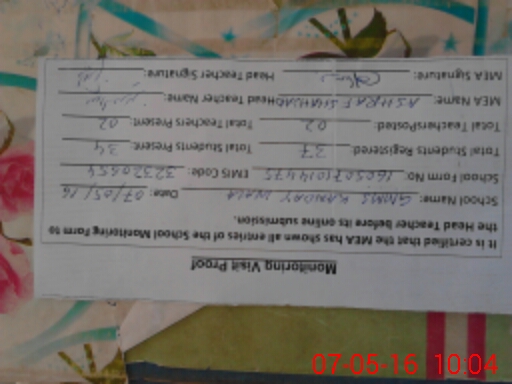 Monitoring Visit Proof
It is certified that the MEA has shown all entries of the School Monitoring Form to
the Head Teacher before its online submission.
School Name: GMMS KANDAY WALA Date: 07/05/16
School Form No: 1605071014475 EMIS Code: 32320854
Total Students Registered: 37 Total Students Present: 34
Total TeachersPosted: 02 Total Teachers Present: 02
MEA Name: ASHRAF SHAHZAD Head Teacher Name:
MEA Signature: Head Teacher Signature:
07-05-16 10:04